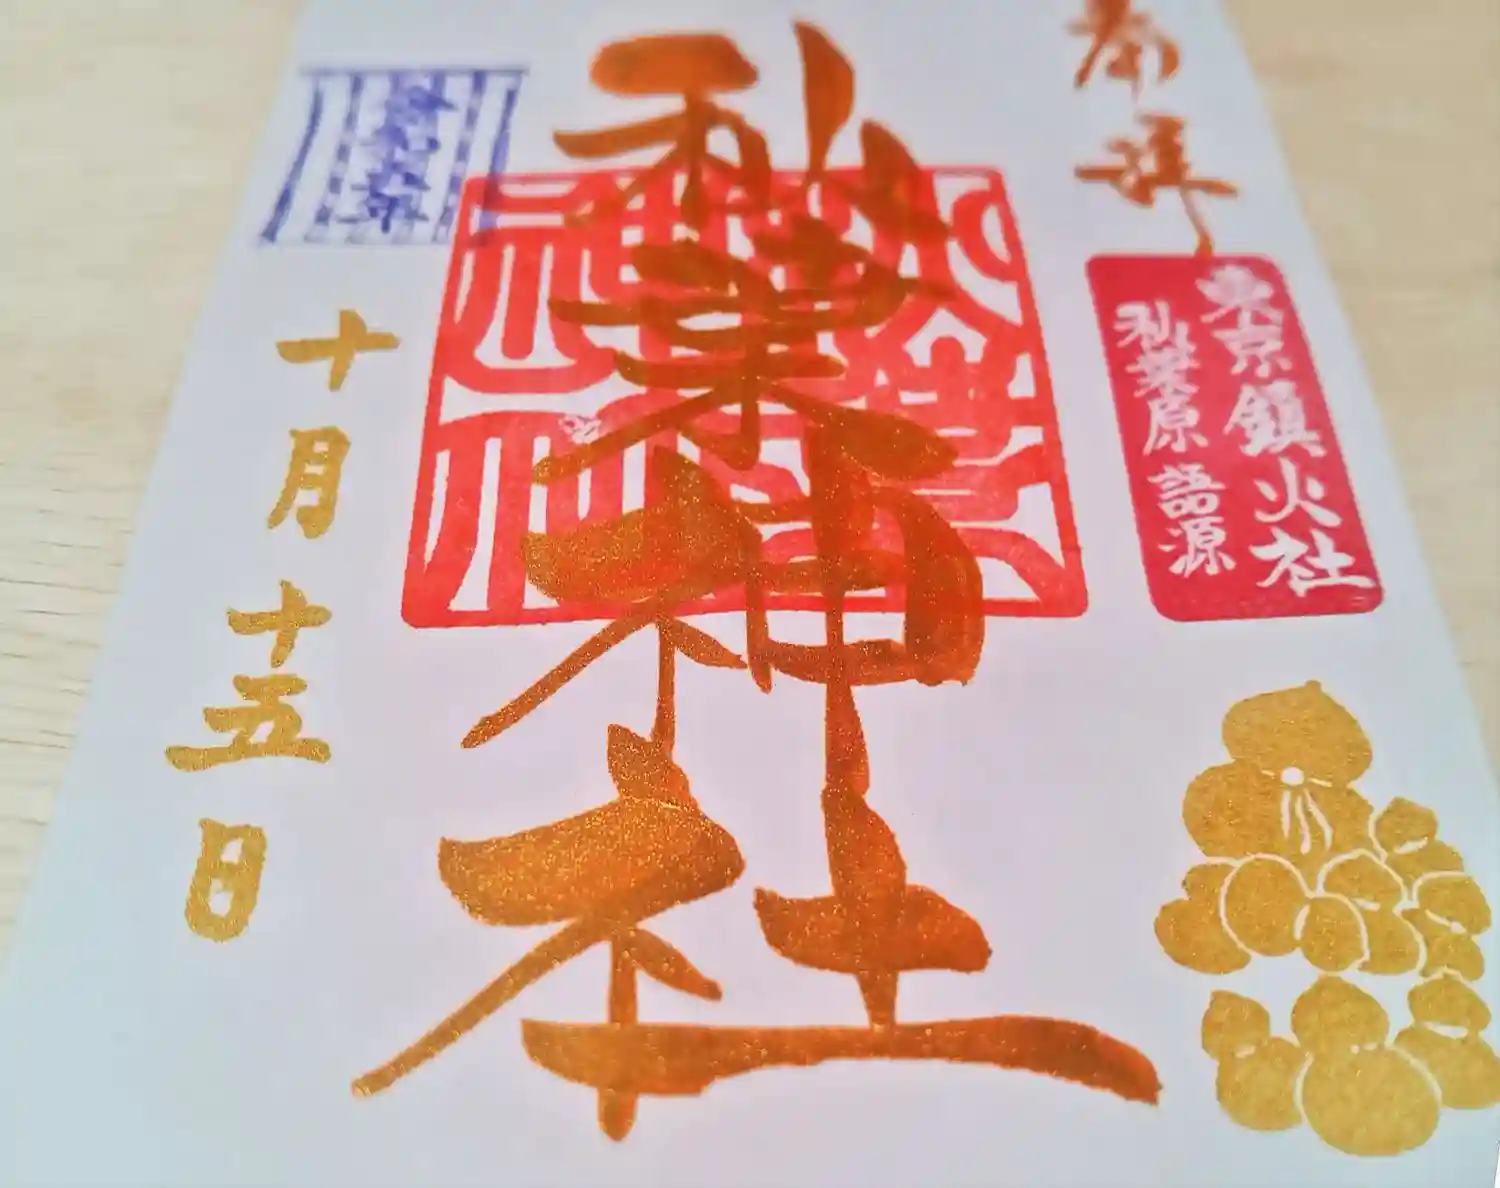 奉拝
東京鎮火社
秋葉原語源
秋葉神社
十月十五日